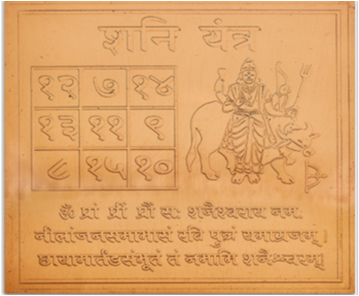 शनि यंत्र
१२ ७ १४
१३ ११ ९
८ १५ १०
ॐ प्रां प्रीं प्रौं सः शनैश्वराय नमः
नीलांजनसमाभासं रवि पुत्रं यमाग्रजम् ।
छायामार्तंडसंभूतं तं नमामि शनैश्चरम् ।